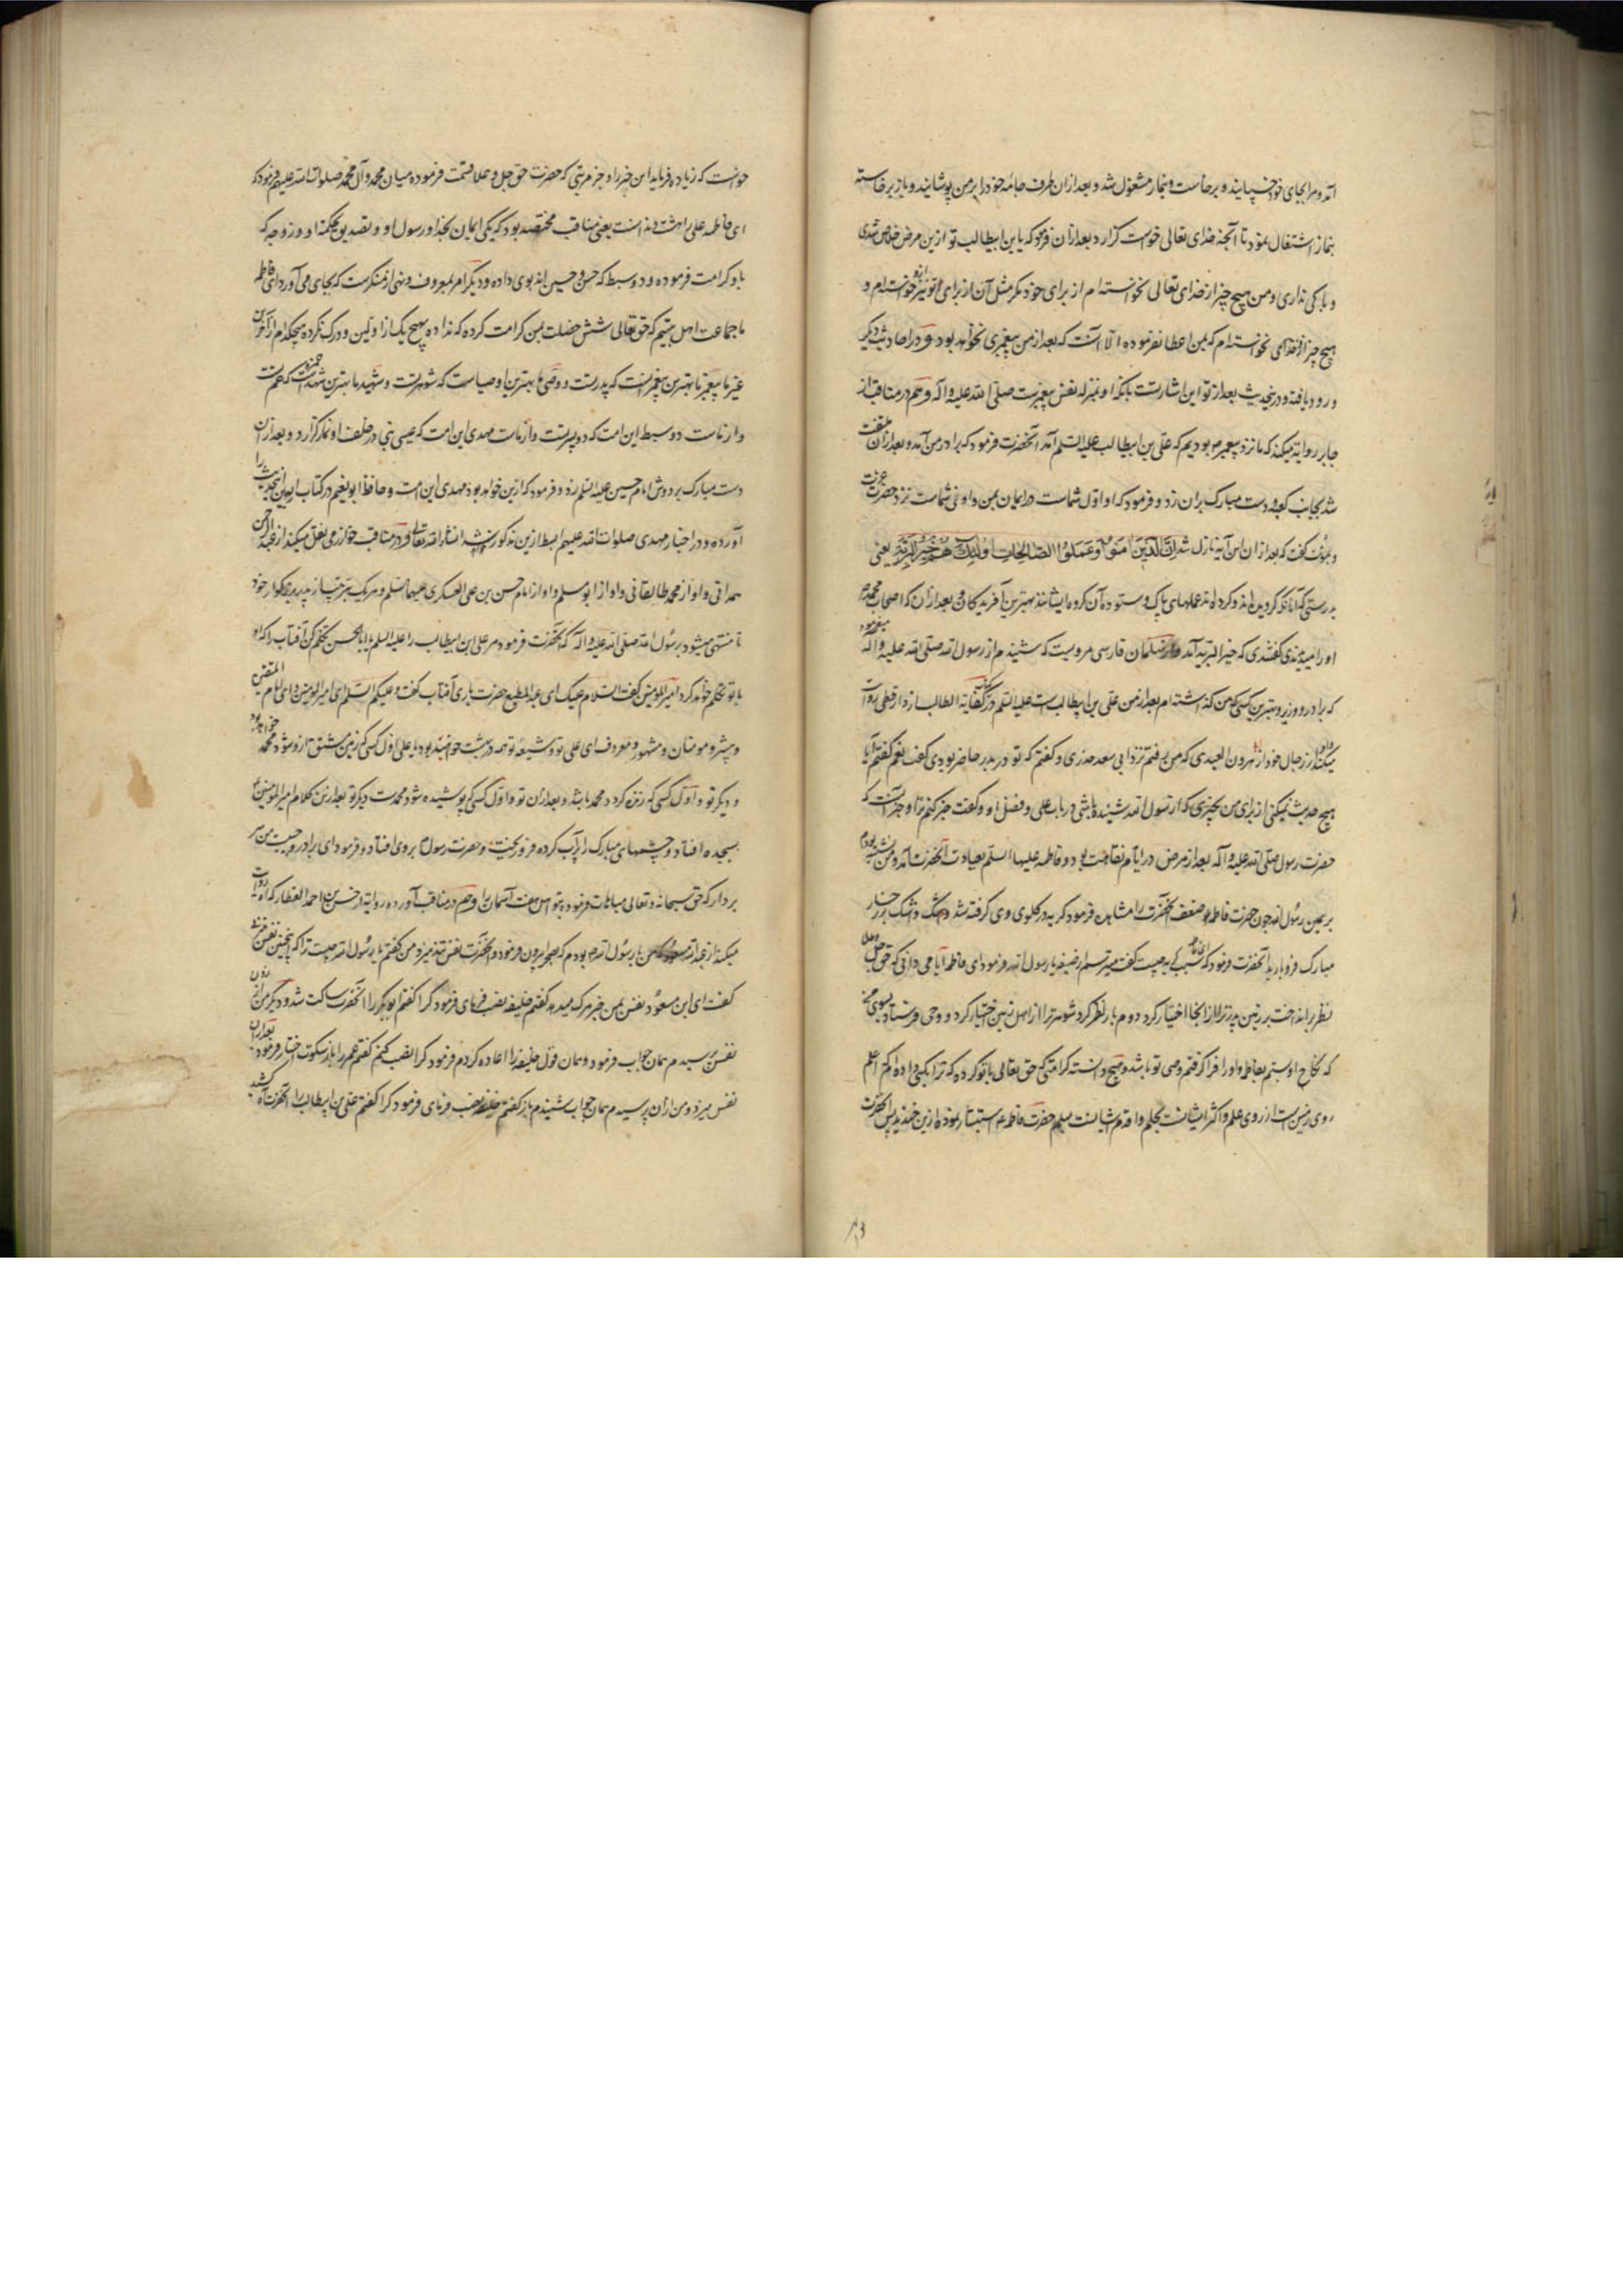 آمد و مرا بجای خود خسپانید و برخاست و بنماز مشغول شد و بعد از ان طرف جامه خود را بر من پوشانید و باز برخاسته
بنماز اشتغال نمود تا آنچه خدای تعالی خواست گزارد بعد از ان فرمود که یا بن ابیطالب تو ازین مرض خلاص شدی
و باکی نداری و من هیچ چیز از خدای تعالی نخواسته ام از برای خود مگر مثل آن از برای تو نیز خواسته ام و
هیچ چیز از خدای نخواسته ام که بمن اعطا نفرموده الا آنست که بعد از من پیغمبری نخواهد بود و در احادیث دیگر
ورود یافته و درینحدیث بعد از تو این اشارتست بانکه او بمنزله نفس پیغمبرست صلی الله علیه و اله و هم در مناقب از
جابر روایه میکند که ما نزد پیغمبر بودیم که علی بن ابیطالب علیه السلم آمد آنحضرت فرمود که برادر من آمد و بعد از ان ملتفت
شد بجانب کعبه و دست مبارک بران زد و فرمود که او اول شماست در ایمان بمن و اوفی شماست نزد حضرت عزت
و گفت که بعد از ان این آیه نازل شد ان الذین امنوا و عملوا الصالحات اولئک هم خیر البریه یعنی
بدرستی که آنانکه گرویده اند و کرده اند عملهای پاک و ستوده آن گروه ایشانند بهترین آفریدگان و بعد از ان که اصحاب محمد ص
او را میدیدندی گفتندی که خیر البریه آمد و از سلمان فارسی مرویست که شنیدم از رسول الله صلی الله علیه و اله میفرمود
که برادر و وزیر و بهترین کسی که من گذاشته ام بعد از من علی بن ابیطالب است علیه السلم و در کتاب کفایة الطالب از دارقطنی روایت
میکند از رجال خود از هرون العبدی که من رفتم نزد ابی سعد خدری و گفتم که تو در بدر حاضر بودی گفت نعم گفتم آیا
هیچ حدیث نمیکنی از برای من بچیزی که از رسول الله شنیده باشی در باب علی و فضل او و گفت خبر کنم ترا و خبر آنست که
حضرت رسول صلی الله علیه و اله بعد از مرض در ایام نقاهت بود و فاطمه علیها السلم بعیادت آنحضرت آمد و من نشسته بودم
بر یمین رسول الله چون حضرت فاطمه ضعف آنحضرت را مشاهده فرمود گریه در گلوی وی گرفته شد و اشک بر رخسار
مبارک فرو بارید آنحضرت فرمود که سبب گریه چیست گفت میترسم از ضیعه یا رسول الله فرمود ای فاطمه آیا نمی دانی که حق جل و علی
نظر انداخت بر زمین پدر ترا از انجا اختیار کرد دوم بار نظر کرد شوهر ترا از اهل زمین اختیار کرد و وحی فرستاد بسوی من
که نکاح او بستم بفاطمه و او را فرا گرفتم وصی تو باشد و هیچ دانسته کرامتی که حق تعالی با تو کرده که ترا بکسی داده که اعلم
روی زمین است از روی علم و اکثر ایشانست بحلم و اقدم ایشانست بسلم حضرت فاطمه ع استبشار نموده ازین خندید پس آنحضرت
خواست که زیاده فرماید این خبر را و جز مرتبتی که حضرت حق جل و علا قسمت فرموده میان محمد و آل محمد صلوات الله علیهم فرمود که
ای فاطمه علی را هشت دندانست یعنی مناقب مختصه بود که یکی ایمان بخدا و رسول او و تصدیق بحکمة او و زوجه که
باو کرامت فرموده و دو سبط که حسن و حسین اند بوی داده و دیگر امر بمعروف و نهی از منکرست که بجای می آورد ای فاطمه
ما جماعت اهل بیتیم که حق تعالی شش خصلت بمن کرامت کرده که نداده بهیچ یک از اولین و درک نکرده هیچکدام از آخرین
غیر ما پیغمبر ما بهترین پیغمبرانست که پدر تست و وصی ما بهترین اوصیاست که شوهر تست و شهید ما بهترین شهداست که عم تست
و از ماست دو سبط این امت که دو پسر تست و از ماست مهدی این امت که عیسی نبی در خلف او نماز گزارد و بعد از ان
دست مبارک بر دوش امام حسین علیه السلم زد و فرمود که ازین خواهد بود مهدی این امت و حافظ ابو نعیم در کتاب اربعین اینحدیث را
آورده و در اخبار مهدی صلوات الله علیهم ابسط ازین مذکور شد انشاء الله تعالی و در مناقب خوارزمی نقل میکند از عبد الرحمن
همدانی و او از محمد طالقانی و او از ابو مسلم و او از امام حسن بن علی العسکری علیهما السلم و هر یک بترتیب از پدر بزرگوار خود
تا منتهی میشود برسول الله صلی الله علیه و اله که آنحضرت فرمود مر علی بن ابیطالب را علیه السلم یا ابا الحسن تکلم کن آفتاب را که او
با تو تکلم خواهد کرد امیر المؤمنین گفت السلام علیک ای عبد المطیع حضرت باری آفتاب گفت و علیکم السلام ای امیر المؤمنین و ای امام المتقین
و پیشرو مومنان و مشهور و معروف ای علی تو و شیعه تو همه در بهشت خواهند بود یا علی اول کسی که زمین منشق ازو شود محمد خواهد بود
و دیگر تو و اول کسی که زنده گردد محمد باشد و بعد از ان تو و اول کسی که پوشیده شود محمدست دیگر تو بعد ازین کلام امیر المؤمنین ع
بسجده افتاد و چشمهای مبارک را پرآب کرده فرو ریخت و حضرت رسول بر وی افتاد و فرمود ای برادر و حبیب من سر
بردار که حق سبحانه و تعالی مباهات فرموده بتو اهل هفت آسمان را و هم در مناقب آورده روایة از حسن بن احمد العطار که او روایت
میکند از عبد الله مسعود که من با رسول الله بودم که بصحرا بیرون فرمود و آنحضرت نفس تند میزد من گفتم یا رسول الله چیست ترا که اینچنین نفس میزنی
گفت ای ابن مسعود نفس بمن خبر مرگ میدهد گفتم خلیفه نصب فرمای فرمود کرا گفتم ابو بکر را آنحضرت ساکت شد و دیگر من از ان
نفس پرسیدم همان جواب فرمود و همان قول خلیفه را اعاده کردم فرمود کرا نصب کنم گفتم عمر را باز سکوت اختیار فرمود بعد از ان
نفس میزد و من از ان پرسیدم همان جواب شنیدم باز گفتم خلیفه نصب فرمای فرمود کرا گفتم علی بن ابیطالب را آنحضرت آه کشید